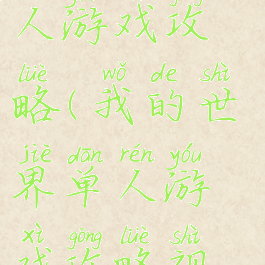 人游戏攻
lüè wǒ de shì
略(我的世
jiè dān rén yóu
界单人游
xì gōng lüè shì
戏攻略视